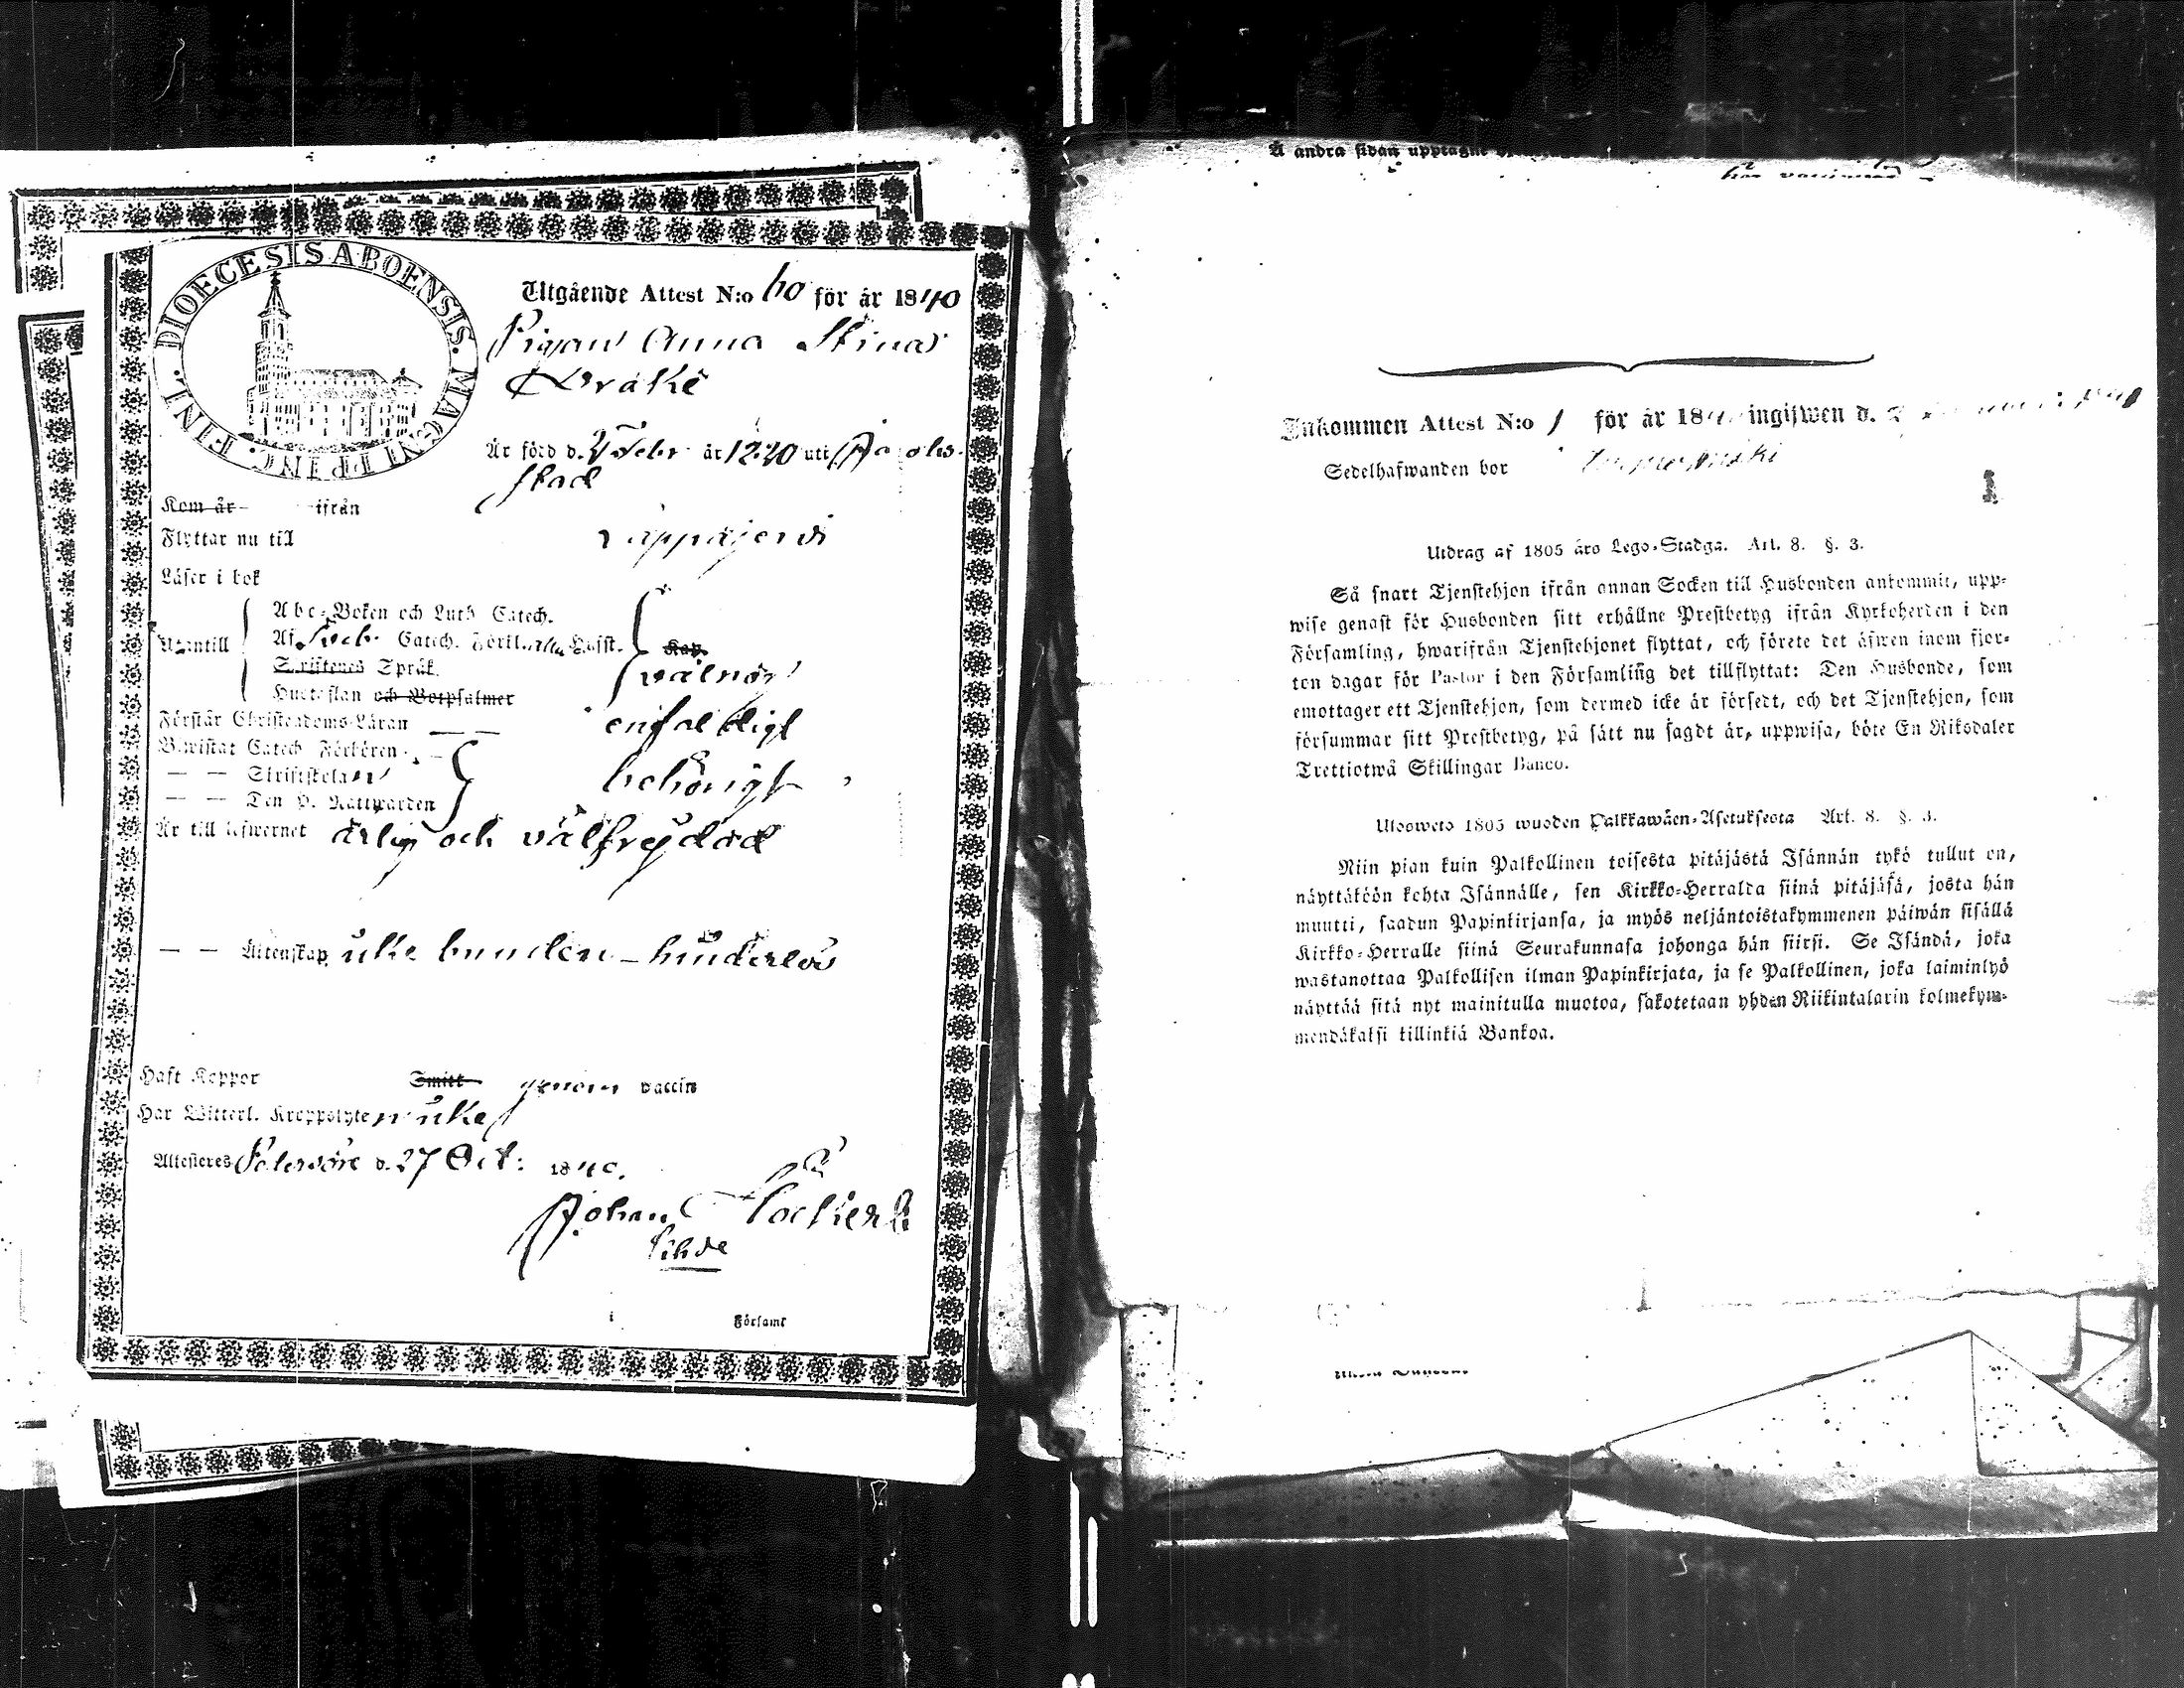 DIOECESIS ABOENSIS. MAGNI PRINC. FINL.
Utgående Attest N:o 60 för år 1840
Pigan Anna Stina
Dråke
Är född d. 2 Febr år 1820 uti Jacobs-
stad
Kom år ifrån
Flyttar nu till Lappajervi
Läser i bok
Abc-Boken och Luth Catech.
Utantill Af Sveb. Catech. Förkl. Hufst.
Skriftenes Språk. välnöj
Hustaflan och Botpsalmer
Förstår Christendoms-Läran enfaldigt
Bewistat Catech Förhören
— — Skriftskolan behörigt
— — Den H. Nattwarden
Är till lefwernet ärlig och välfrejdad
— — Äktenskap icke bunden – hinderlös
Haft Koppor Smitt genom vaccin
Har Witterl. Kroppslyten icke
Attesteres Pedersöre d. 27 Oct: 1840.
Johan
i Församl
Å andra sidan upptagne
Inkommen Attest N:o 1 för år 184 ingifwen d.
Sedelhafwanden bor
1
Utdrag af 1805 års Lego-Stadga. Art. 8. §. 3.
Så snart Tjenstehjon ifrån annan Socken till Husbonden ankommit, upp-
wise genast för Husbonden sitt erhållne Prestbetyg ifrån Kyrkoherden i den
Församling, hwarifrån Tjenstehjonet flyttat, och förete det äfwen inom fjor-
ton dagar för Pastor i den Församling det tillflyttat: Den Husbonde, som
emottager ett Tjenstehjon, som dermed icke är försedt, och det Tjenstehjon, som
försummar sitt Prestbetyg, på sätt nu sagdt är, uppwisa, böte En Riksdaler
Trettiotwå Skillingar Banco.
Ulosweto 1805 wuoden Palkkawäen-Asetuksesta Art. 8. §. 3.
Niin pian kuin Palkollinen toisesta pitäjästä Isännän tykö tullut on,
näyttäköön kohta Isännälle, sen Kirkko-Herralda siinä pitäjäsä, josta hän
muutti, saadun Papinkirjansa, ja myös neljäntoistakymmenen päiwän sisällä
Kirkko-Herralle siinä Seurakunnasa johonga hän siirsi. Se Isändä, joka
wastanottaa Palkollisen ilman Papinkirjata, ja se Palkollinen, joka laiminlyö
näyttää sitä nyt mainitulla muotoa, sakotetaan yhden Riikintalarin kolmekym-
mendäkaksi killinkiä Bankoa.